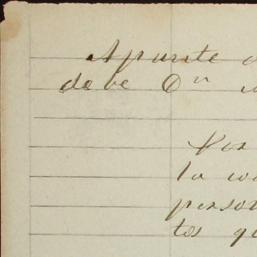 Apunte
debe Dn
Por
la
person
tos qu